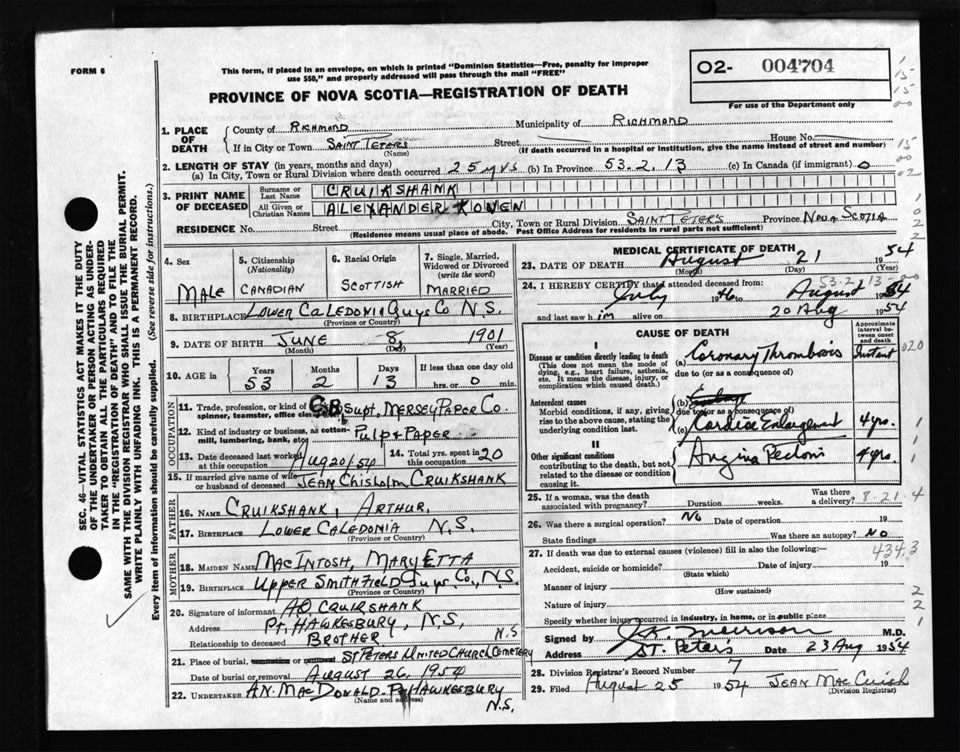 FORM 6
This form, if placed in an envelope, on which is printed "Dominion Statistics—Free, penalty for improper
use $50," and properly addressed will pass through the mail "FREE"
PROVINCE OF NOVA SCOTIA—REGISTRATION OF DEATH
O2- 004704
For use of the Department only
1. PLACE OF DEATH
County of RICHMOND Municipality of RICHMOND
If in City or Town SAINT PETERS Street House No.
(Name) (If death occurred in a hospital or institution, give the name instead of street and number)
2. LENGTH OF STAY (in years, months and days)
(a) In City, Town or Rural Division where death occurred 25 yrs (b) In Province 53.2.13 (c) In Canada (if immigrant) 0
3. PRINT NAME OF DECEASED
Surname or Last Name CRUIKSHANK
All Given or Christian Names ALEXANDER
RESIDENCE No. Street City, Town or Rural Division SAINT PETERS Province NOVA SCOTIA
(Residence means usual place of abode. Post Office Address for residents in rural parts not sufficient)
4. Sex MALE
5. Citizenship (Nationality) CANADIAN
6. Racial Origin SCOTTISH
7. Single, Married, Widowed or Divorced (write the word) MARRIED
8. BIRTHPLACE LOWER CALEDONIA GUYS CO N.S.
(Province or Country)
9. DATE OF BIRTH JUNE 8, 1901
(Month) (Day) (Year)
10. AGE in Years Months Days If less than one day old
53 2 13 hrs. or 0 min.
OCCUPATION
11. Trade, profession, or kind of
spinner, teamster, office SUPT. MERSEY PAPER CO.
12. Kind of industry or business, as cotton-
mill, lumbering, bank, etc. PULP & PAPER
13. Date deceased last worked at this occupation AUG 20/54
14. Total yrs. spent in this occupation 20
15. If married give name of wife or husband of deceased JEAN CHISHOLM CRUIKSHANK
FATHER
16. NAME CRUIKSHANK, ARTHUR.
17. BIRTHPLACE LOWER CALEDONIA N.S.
(Province or Country)
MOTHER
18. MAIDEN NAME MACINTOSH, MARY ETTA
19. BIRTHPLACE UPPER SMITHFIELD GUYS CO., N.S.
(Province or Country)
20. Signature of informant A.O. CRUIKSHANK
Address PT. HAWKESBURY, N.S,
Relationship to deceased BROTHER N.S
21. Place of burial, ST PETERS UNITED CHURCH CEMETERY
Date of burial or removal AUGUST 26, 1954
22. UNDERTAKER A.N. MACDONALD. PT HAWKESBURY
(Name and address) N.S.
MEDICAL CERTIFICATE OF DEATH
23. DATE OF DEATH August 21 1954
(Month) (Day) (Year)
24. I HEREBY CERTIFY that I attended deceased from: 53.2.13
July 1946 August 1954
and last saw him alive on 20 Aug 1954
CAUSE OF DEATH
Approximate interval between onset and death
I
Disease or condition directly leading to death
(This does not mean the mode of dying, e.g., heart failure, asthenia, etc. It means the disease, injury, or complication which caused death.)
(a) Coronary Thrombosis Instant 020
due to (or as a consequence of)
Antecedent causes
Morbid conditions, if any, giving rise to the above cause, stating the underlying condition last.
(b)
due to (or as a consequence of)
(c) Cardiac Enlargement 4 yrs.
II
Other significant conditions
contributing to the death, but not related to the disease or condition causing it.
Angina Pectoris 4 yrs.
25. If a woman, was the death associated with pregnancy? Duration weeks. Was there a delivery? 8.21.4
26. Was there a surgical operation? No Date of operation 19
State findings Was there an autopsy? NO
27. If death was due to external causes (violence) fill in also the following:— 434.3
Accident, suicide or homicide? Date of injury 19
(State which)
Manner of injury
(How sustained)
Nature of injury
Specify whether injury occurred in industry, in home, or in public place
Signed by Morrison M.D.
Address ST. Peter's Date 23 Aug 1954
28. Division Registrar's Record Number 7
29. Filed August 25 1954 JEAN MAC CUISH
(Division Registrar)
SEC. 46—VITAL STATISTICS ACT MAKES IT THE DUTY
OF THE UNDERTAKER OR PERSON ACTING AS UNDER-
TAKER TO OBTAIN ALL THE PARTICULARS REQUIRED
IN THE "REGISTRATION OF DEATH" AND TO FILE THE
SAME WITH THE DIVISION REGISTRAR WHO SHALL ISSUE THE BURIAL PERMIT.
WRITE PLAINLY WITH UNFADING INK. THIS IS A PERMANENT RECORD.
Every item of information should be carefully supplied. (See reverse side for instructions.)